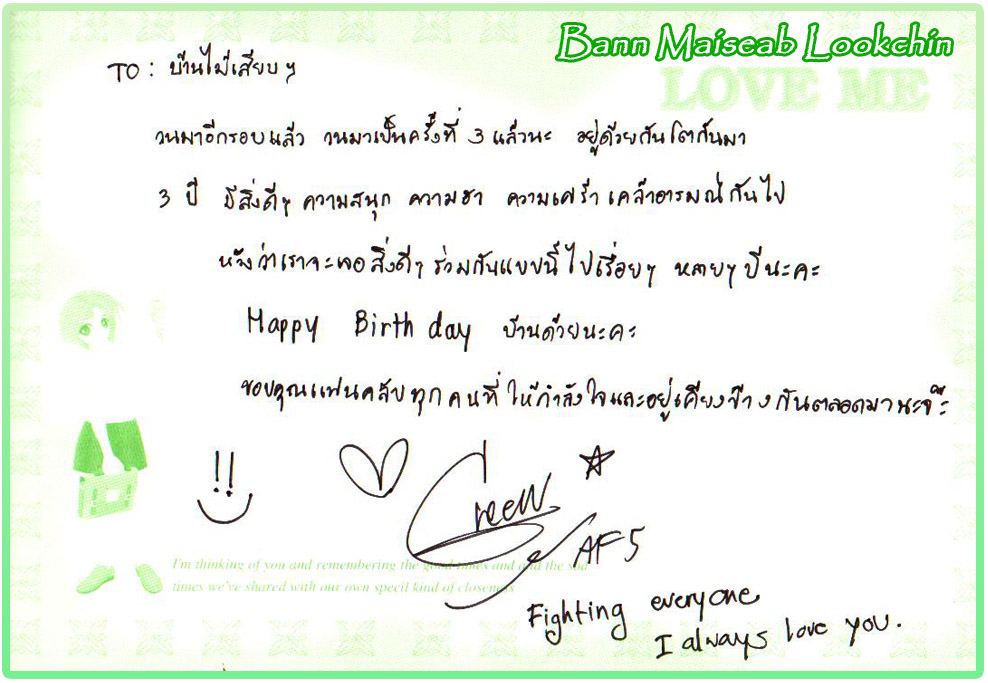 Bann Maiseab Lookchin
LOVE ME
TO : บ้านไม้เสียบๆ
วนมาอีกรอบแล้ว วนมาเป็นครั้งที่ 3 แล้วนะ อยู่ด้วยกันโตกันมา
3 ปี มีสิ่งดีๆ ความสนุก ความฮา ความเศร้า เคล้าอารมณ์กันไป
หวังว่าเราจะเจอสิ่งดีๆ ร่วมกันแบบนี้ไปเรื่อยๆ หลายๆ ปีนะคะ
Happy Birth day บ้านด้วยนะคะ
ขอบคุณแฟนคลับทุกคนที่ให้กำลังใจและอยู่เคียงข้างกันตลอดมานะจ๊ะ
!!
Green
AF5
I'm thinking of you and remembering the good times and and the sad
times we've shared with our own specil kind of closeness
Fighting everyone
I always love you.